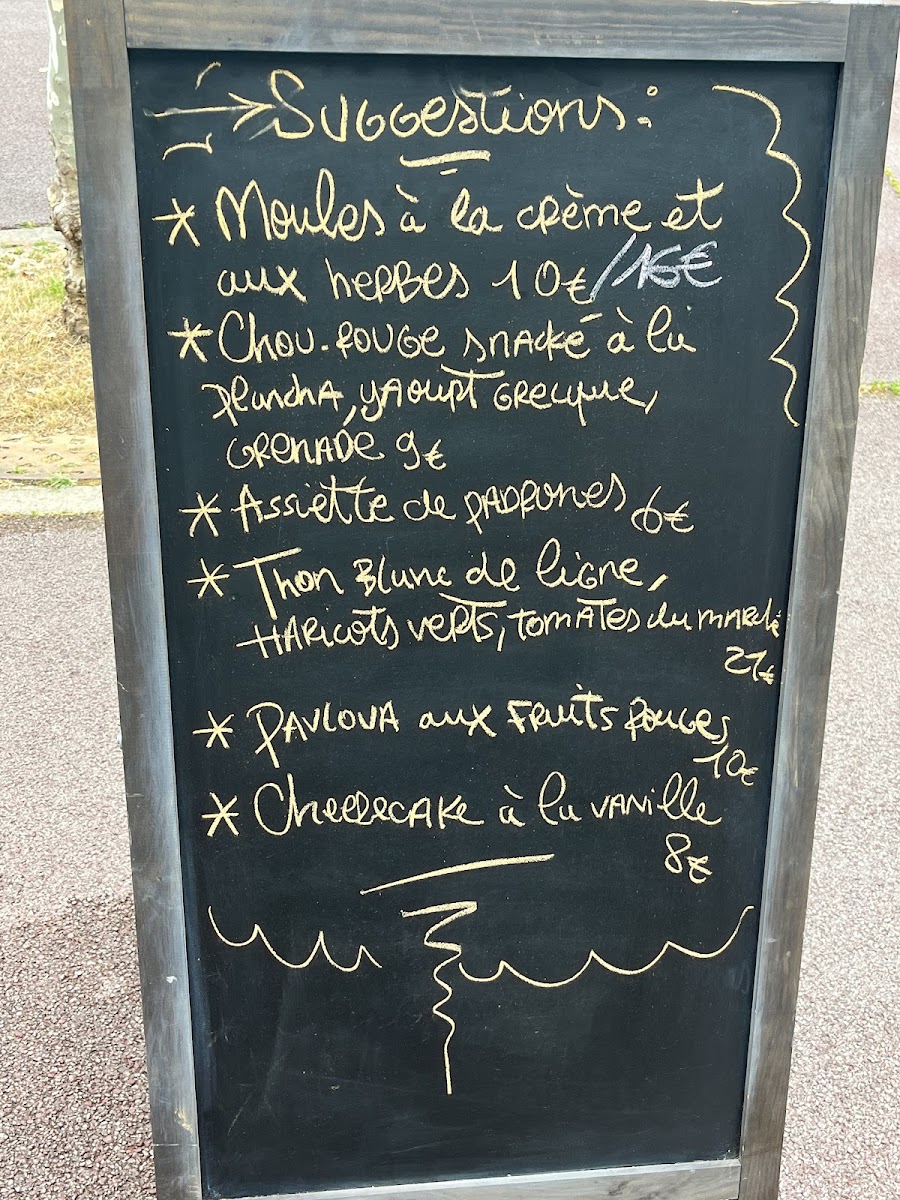 Suggestions :
* Moules à la crème et
aux herbes 10€/16€
* Chou-rouge snacké à la
plancha, yaourt grecque,
grenade 9€
* Assiette de padrones 6€
* Thon blanc de ligne,
haricots verts, tomates du marché
21€
* Pavlova aux fruits rouges
10€
* Cheesecake à la vanille
8€